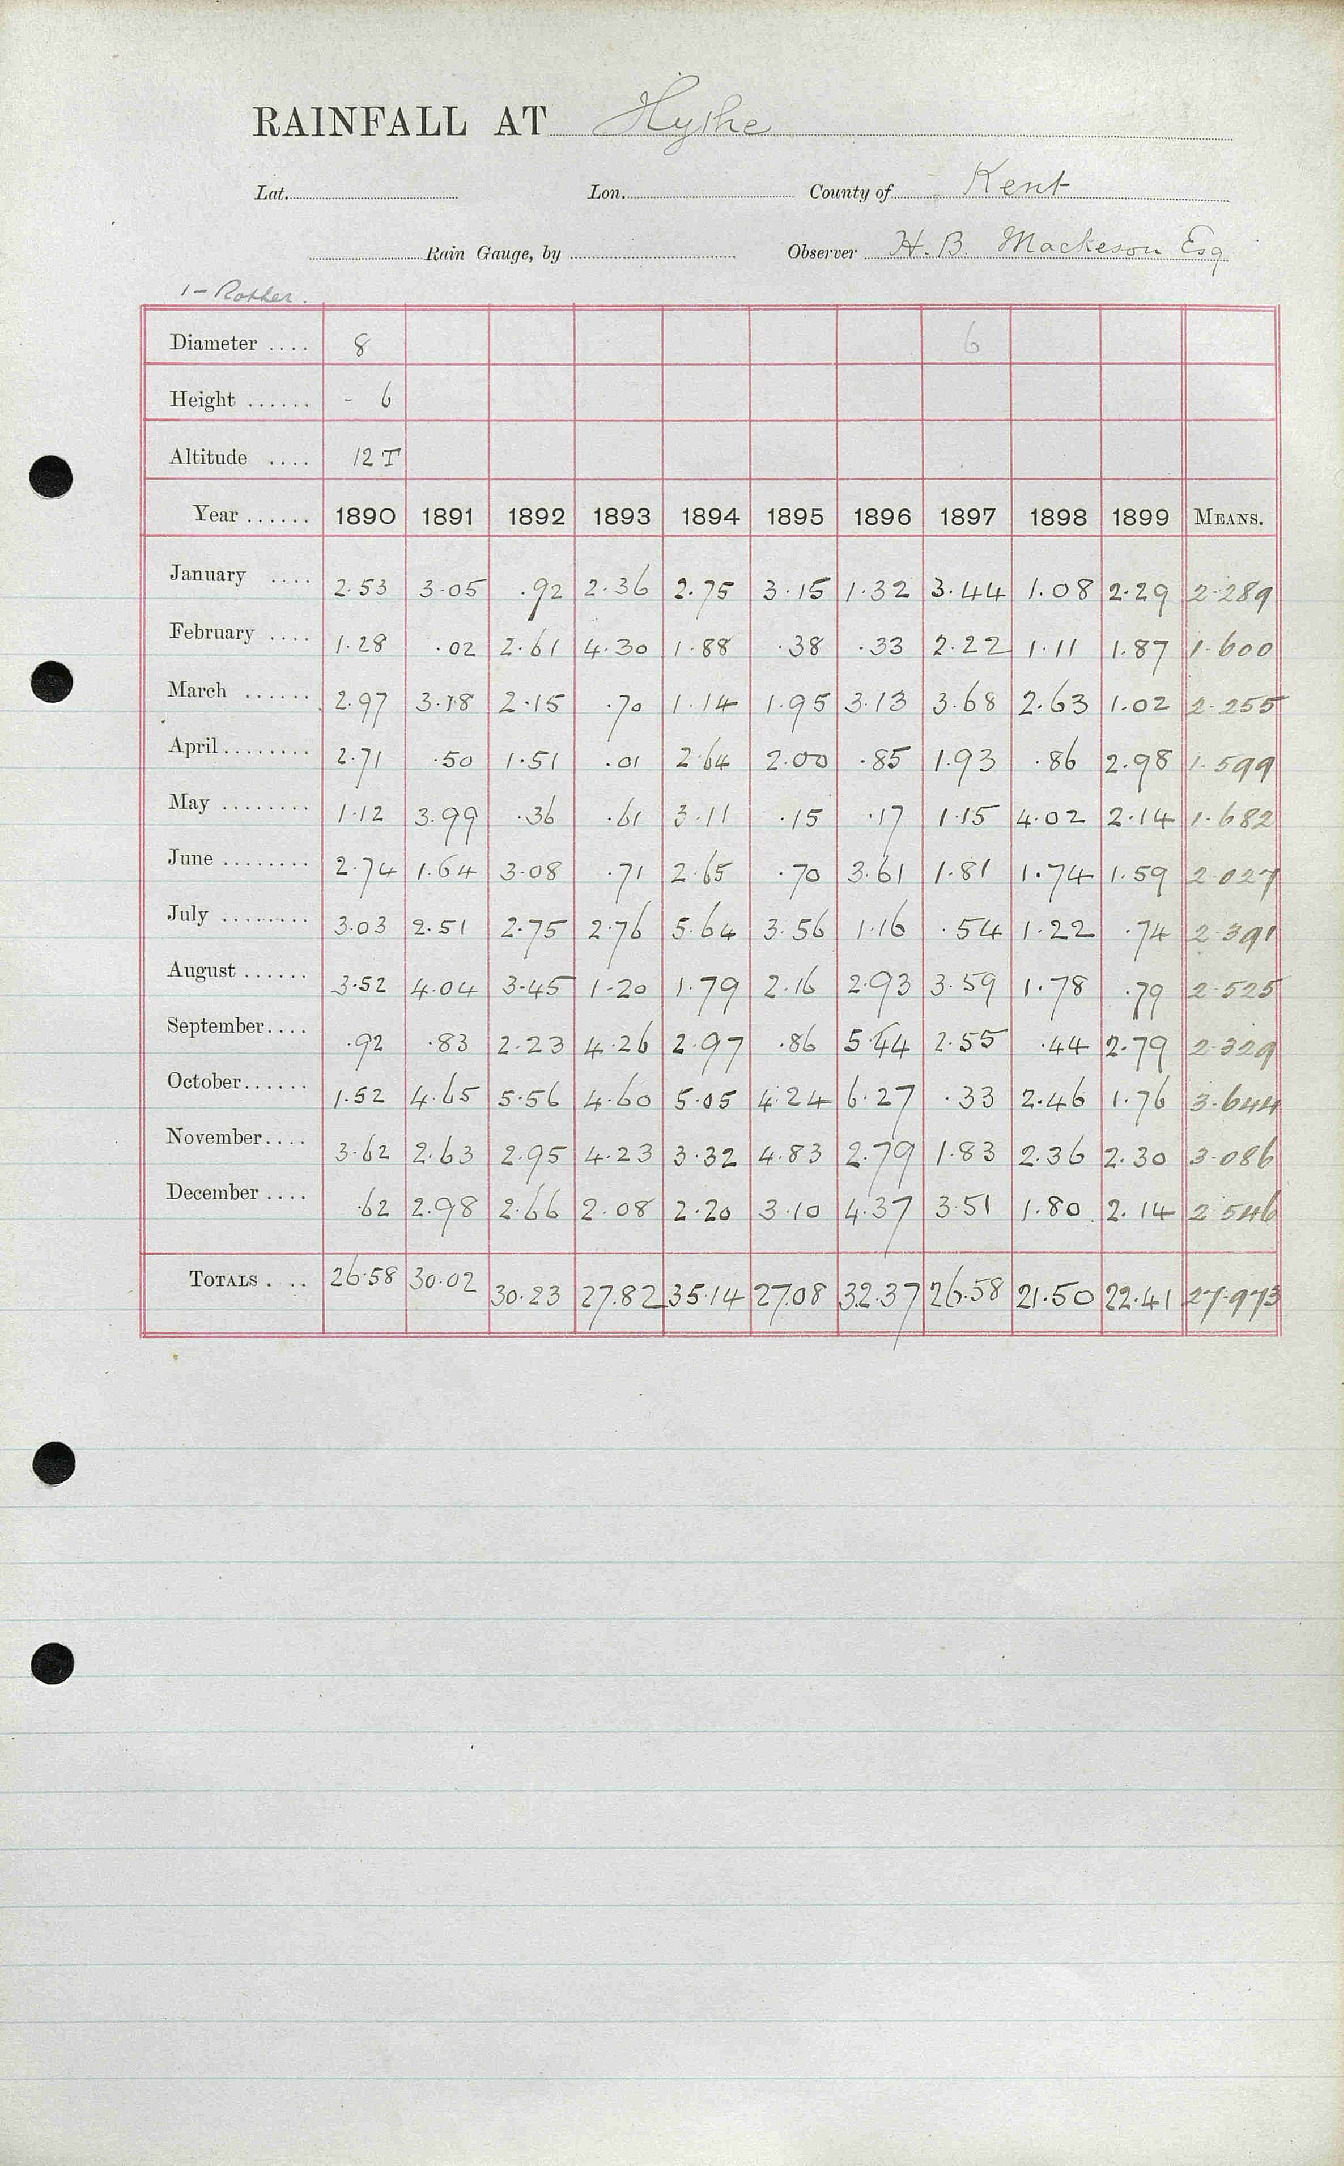 RAINFALL AT Hythe
Lat. Lon. County of Kent
Rain Gauge, by Observer H. B. Mackeson Esq
1 - Rother.
Diameter .... 8 6
Height ...... - 6
Altitude .... 12 T
Year ...... 1890 1891 1892 1893 1894 1895 1896 1897 1898 1899 MEANS.
January .... 2.53 3.05 .92 2.36 2.75 3.15 1.32 3.44 1.08 2.29 2.289
February .... 1.28 .02 2.61 4.30 1.88 .38 .33 2.22 1.11 1.87 1.600
March ...... 2.97 3.18 2.15 .70 1.14 1.95 3.13 3.68 2.63 1.02 2.255
April ........ 2.71 .50 1.51 .01 2.64 2.00 .85 1.93 .86 2.98 1.599
May ........ 1.12 3.99 .36 .61 3.11 .15 .17 1.15 4.02 2.14 1.682
June ........ 2.74 1.64 3.08 .71 2.65 .70 3.61 1.81 1.74 1.59 2.027
July ........ 3.03 2.51 2.75 2.76 5.64 3.56 1.16 .54 1.22 .74 2.391
August ...... 3.52 4.04 3.45 1.20 1.79 2.16 2.93 3.59 1.78 .79 2.525
September.... .92 .83 2.23 4.26 2.97 .86 5.44 2.55 .44 2.79 2.329
October...... 1.52 4.65 5.56 4.60 5.05 4.24 6.27 .33 2.46 1.76 3.644
November.... 3.62 2.63 2.95 4.23 3.32 4.83 2.79 1.83 2.36 2.30 3.086
December .... .62 2.98 2.66 2.08 2.20 3.10 4.37 3.51 1.80 2.14 2.546
TOTALS .... 26.58 30.02 30.23 27.82 35.14 27.08 32.37 26.58 21.50 22.41 27.973